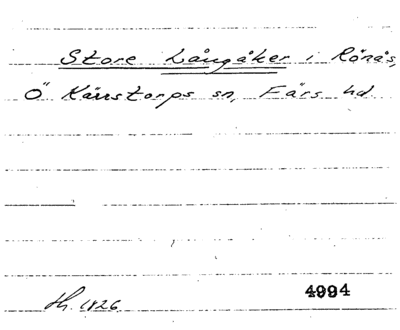 Store Långåker i Rönås,
Ö Kärrstorps sn, Färs hd.
Hh. 1826.
4994